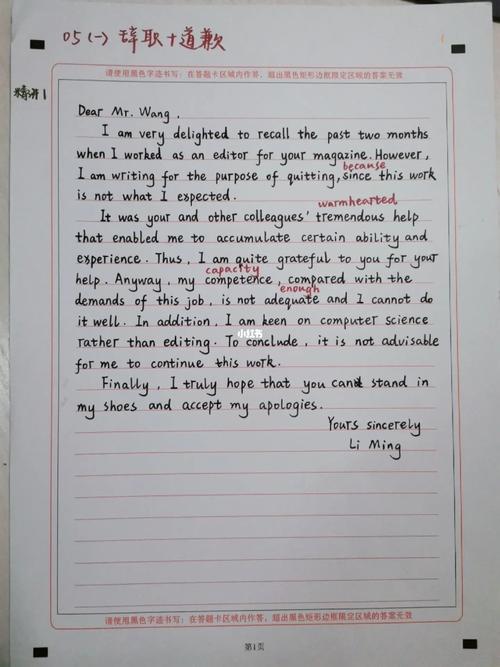 05(一)辞职+道歉
请使用黑色字迹书写:在答题卡区域内作答,超出黑色矩形边框限定区域的答案无效
精讲1
Dear Mr. Wang,
I am very delighted to recall the past two months
when I worked as an editor for your magazine. However,
because
I am writing for the purpose of quitting, since this work
is not what I expected.
warmhearted
It was your and other colleagues' tremendous help
that enabled me to accumulate certain ability and
experience. Thus, I am quite grateful to you for your
capacity
help. Anyway, my competence, compared with the
enough
demands of this job, is not adequate and I cannot do
it well. In addition, I am keen on computer science
小红书
rather than editing. To conclude, it is not advisable
for me to continue this work.
Finally, I truly hope that you can stand in
my shoes and accept my apologies.
Yours sincerely
Li Ming
请使用黑色字迹书写:在答题卡区域内作答,超出黑色矩形边框限定区域的答案无效
第1页